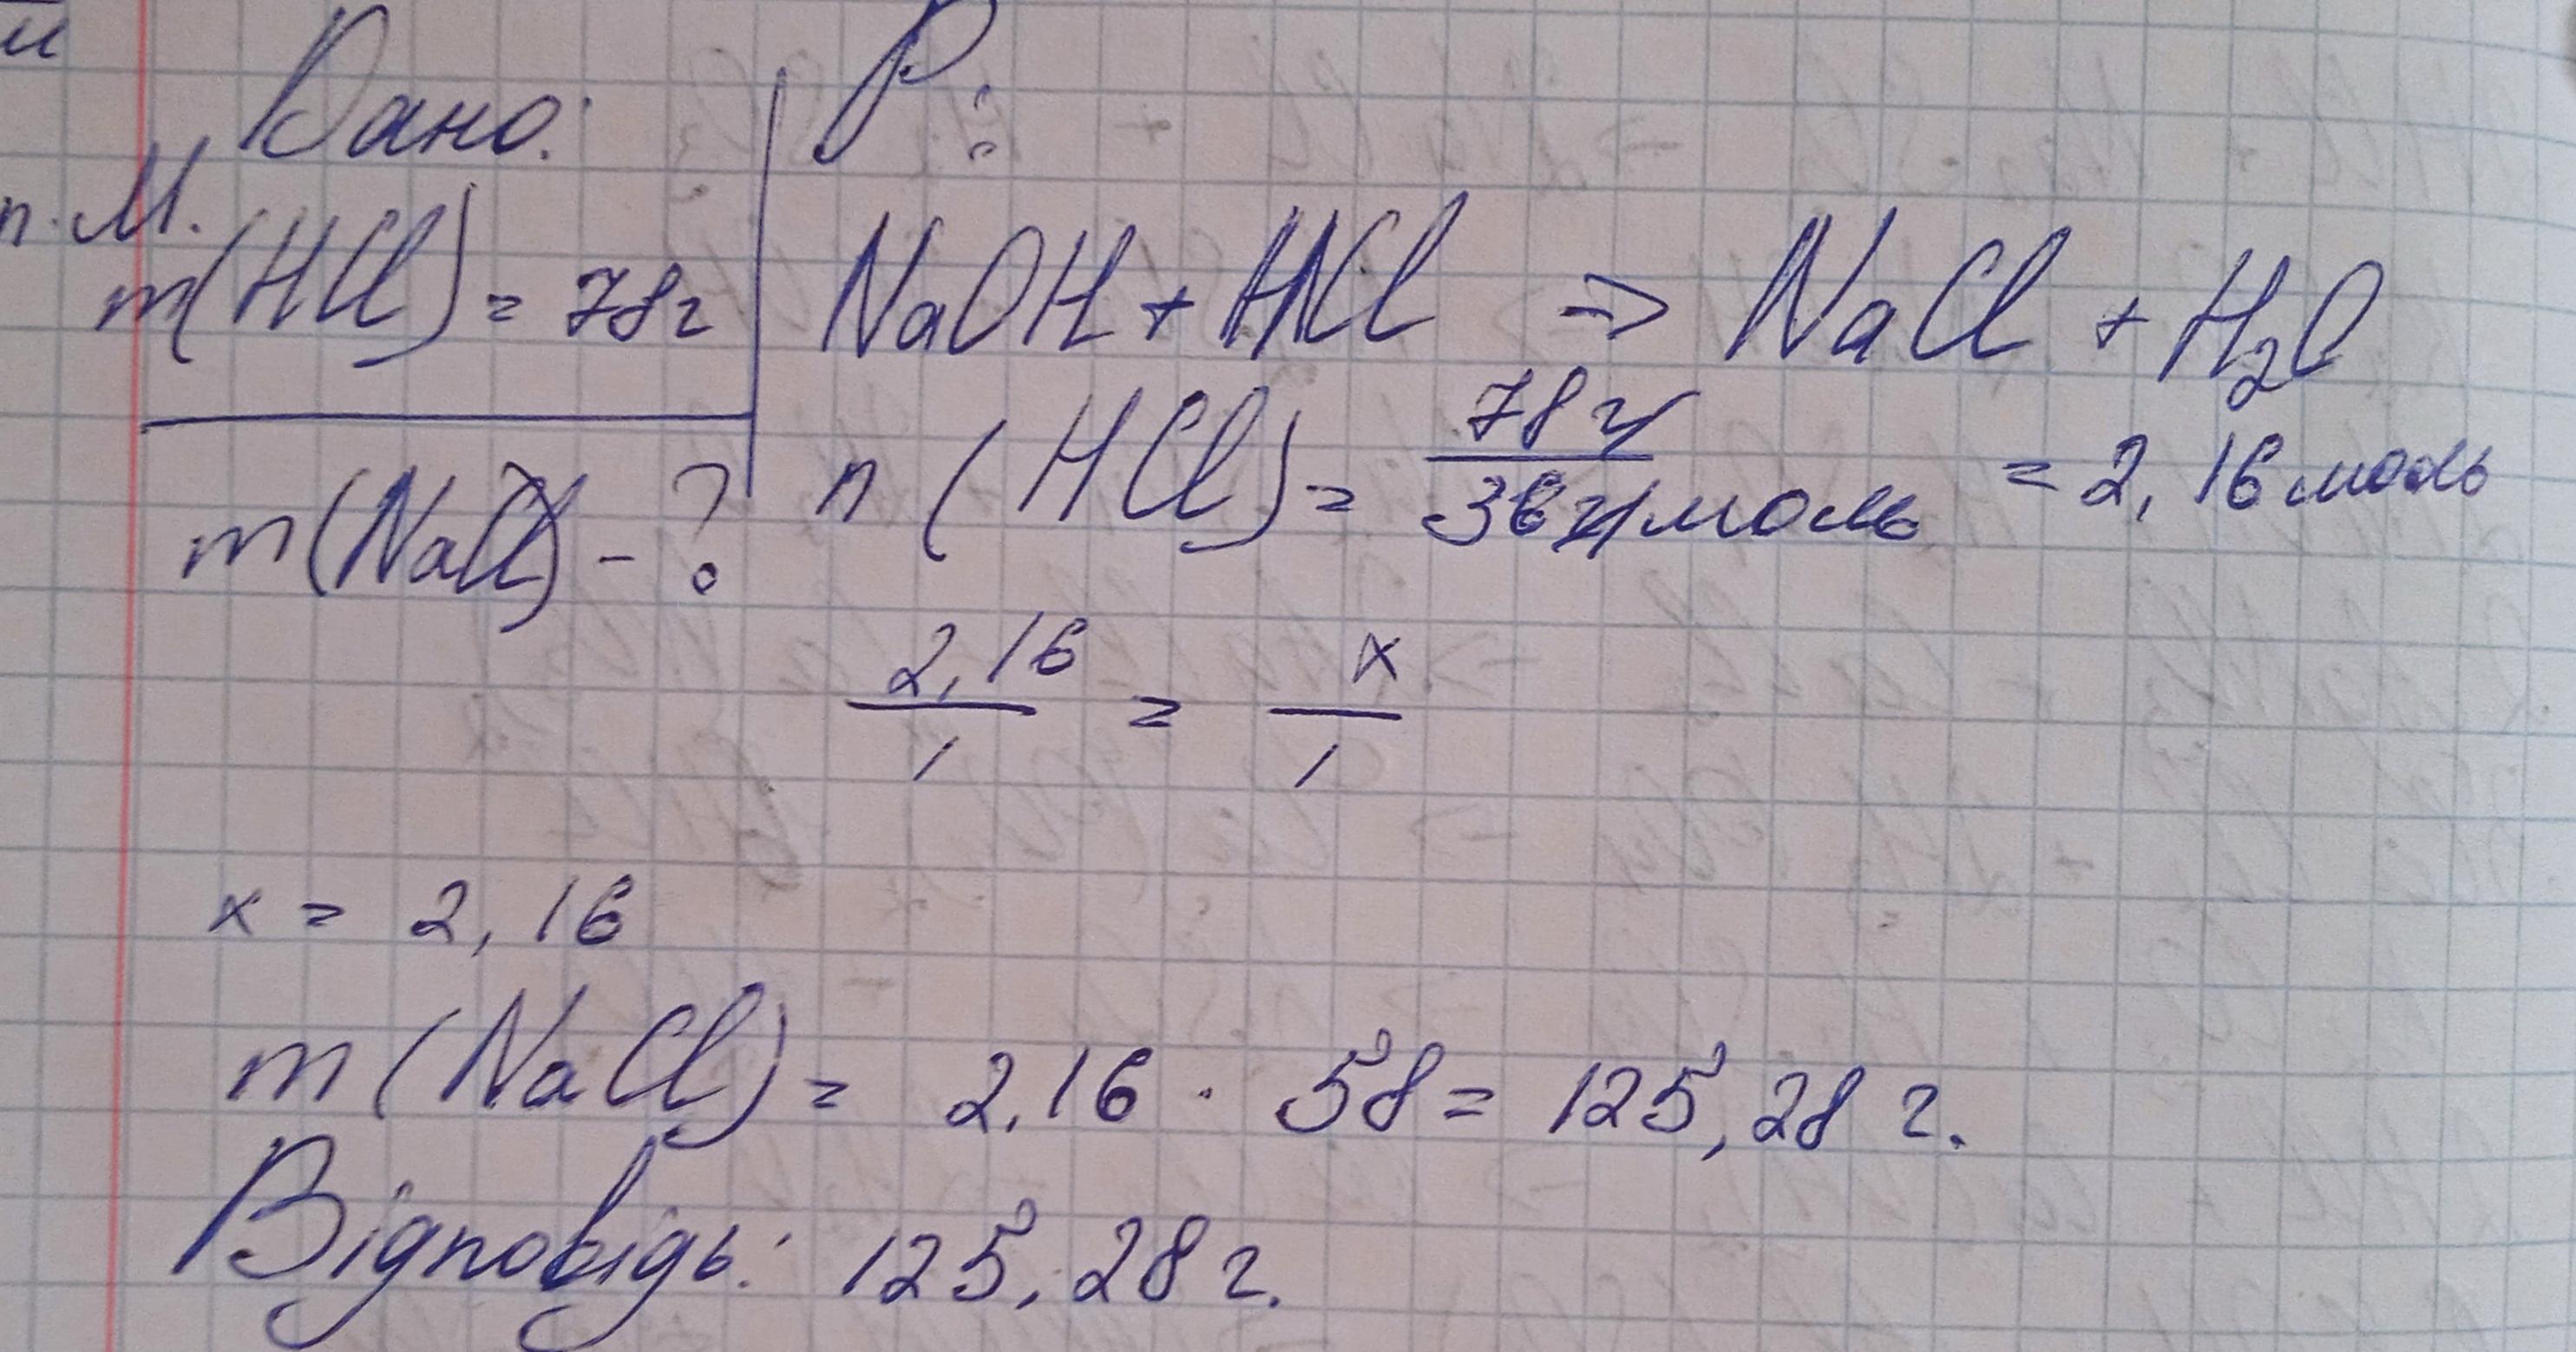 Дано:
Р:
п. М.
m(HCl) = 78г
NaOH + HCl ⇒ NaCl + H₂O
m(NaCl) - ?
n (HCl) = 78 г / 36 г/моль = 2,16 моль
2,16 / 1 = x / 1
x = 2,16
m (NaCl) = 2,16 · 58 = 125,28 г.
Відповідь: 125,28 г.